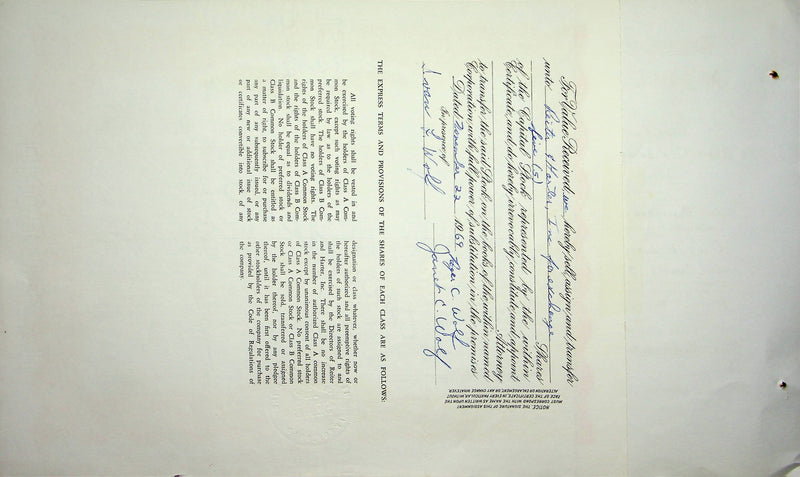 For Value Received, we hereby sell, assign and transfer
unto Reiter & Harter, Inc. for exchange
five (5) Shares
of the Capital Stock represented by the within
Certificate, and do hereby irrevocably constitute and appoint
Attorney
to transfer the said Stock on the books of the within named
Corporation with full power of substitution in the premises
Dated December 22 1969
In presence of Roger C. Wolf
L. Wolf Janet C. Wolf
NOTICE: THE SIGNATURE OF THIS ASSIGNMENT
MUST CORRESPOND WITH THE NAME AS WRITTEN UPON THE
FACE OF THE CERTIFICATE, IN EVERY PARTICULAR, WITHOUT
ALTERATION OR ENLARGEMENT, OR ANY CHANGE WHATEVER.
THE EXPRESS TERMS AND PROVISIONS OF THE SHARES OF EACH CLASS ARE AS FOLLOWS:
All voting rights shall be vested in and
be exercised by the holders of Class A Com-
mon Stock, except such voting rights as may
be required by law as to the holders of the
preferred stock. The holders of Class B Com-
mon Stock shall have no voting rights. The
rights of the holders of Class A Common Stock
and the rights of the holders of Class B Com-
mon stock shall be equal as to dividends and
liquidation. No holder of preferred stock or
Class B Common Stock shall be entitled as
a matter of right, to subscribe for or purchase
any part of any subsequently issued, or any
part of any new or additional issue of stock
or certificates convertible into stock, of any
designation or class whatever, whether now or
hereafter authorized and all preemptive rights of
the holders of such stock are assigned to and
shall be exercised by the Directors of Reiter
and Harter, Inc. There shall be no increase
in the number of authorized Class A common
stock except by unanimous consent of all holders
of Class A Common Stock. No preferred stock
or Class A Common Stock or Class B Common
Stock shall be sold, transferred or assigned
by the holder thereof, nor by any pledgee
thereof, until it has been first offered to the
other stockholders of the company for purchase
as provided by the Code of Regulations of
the company.